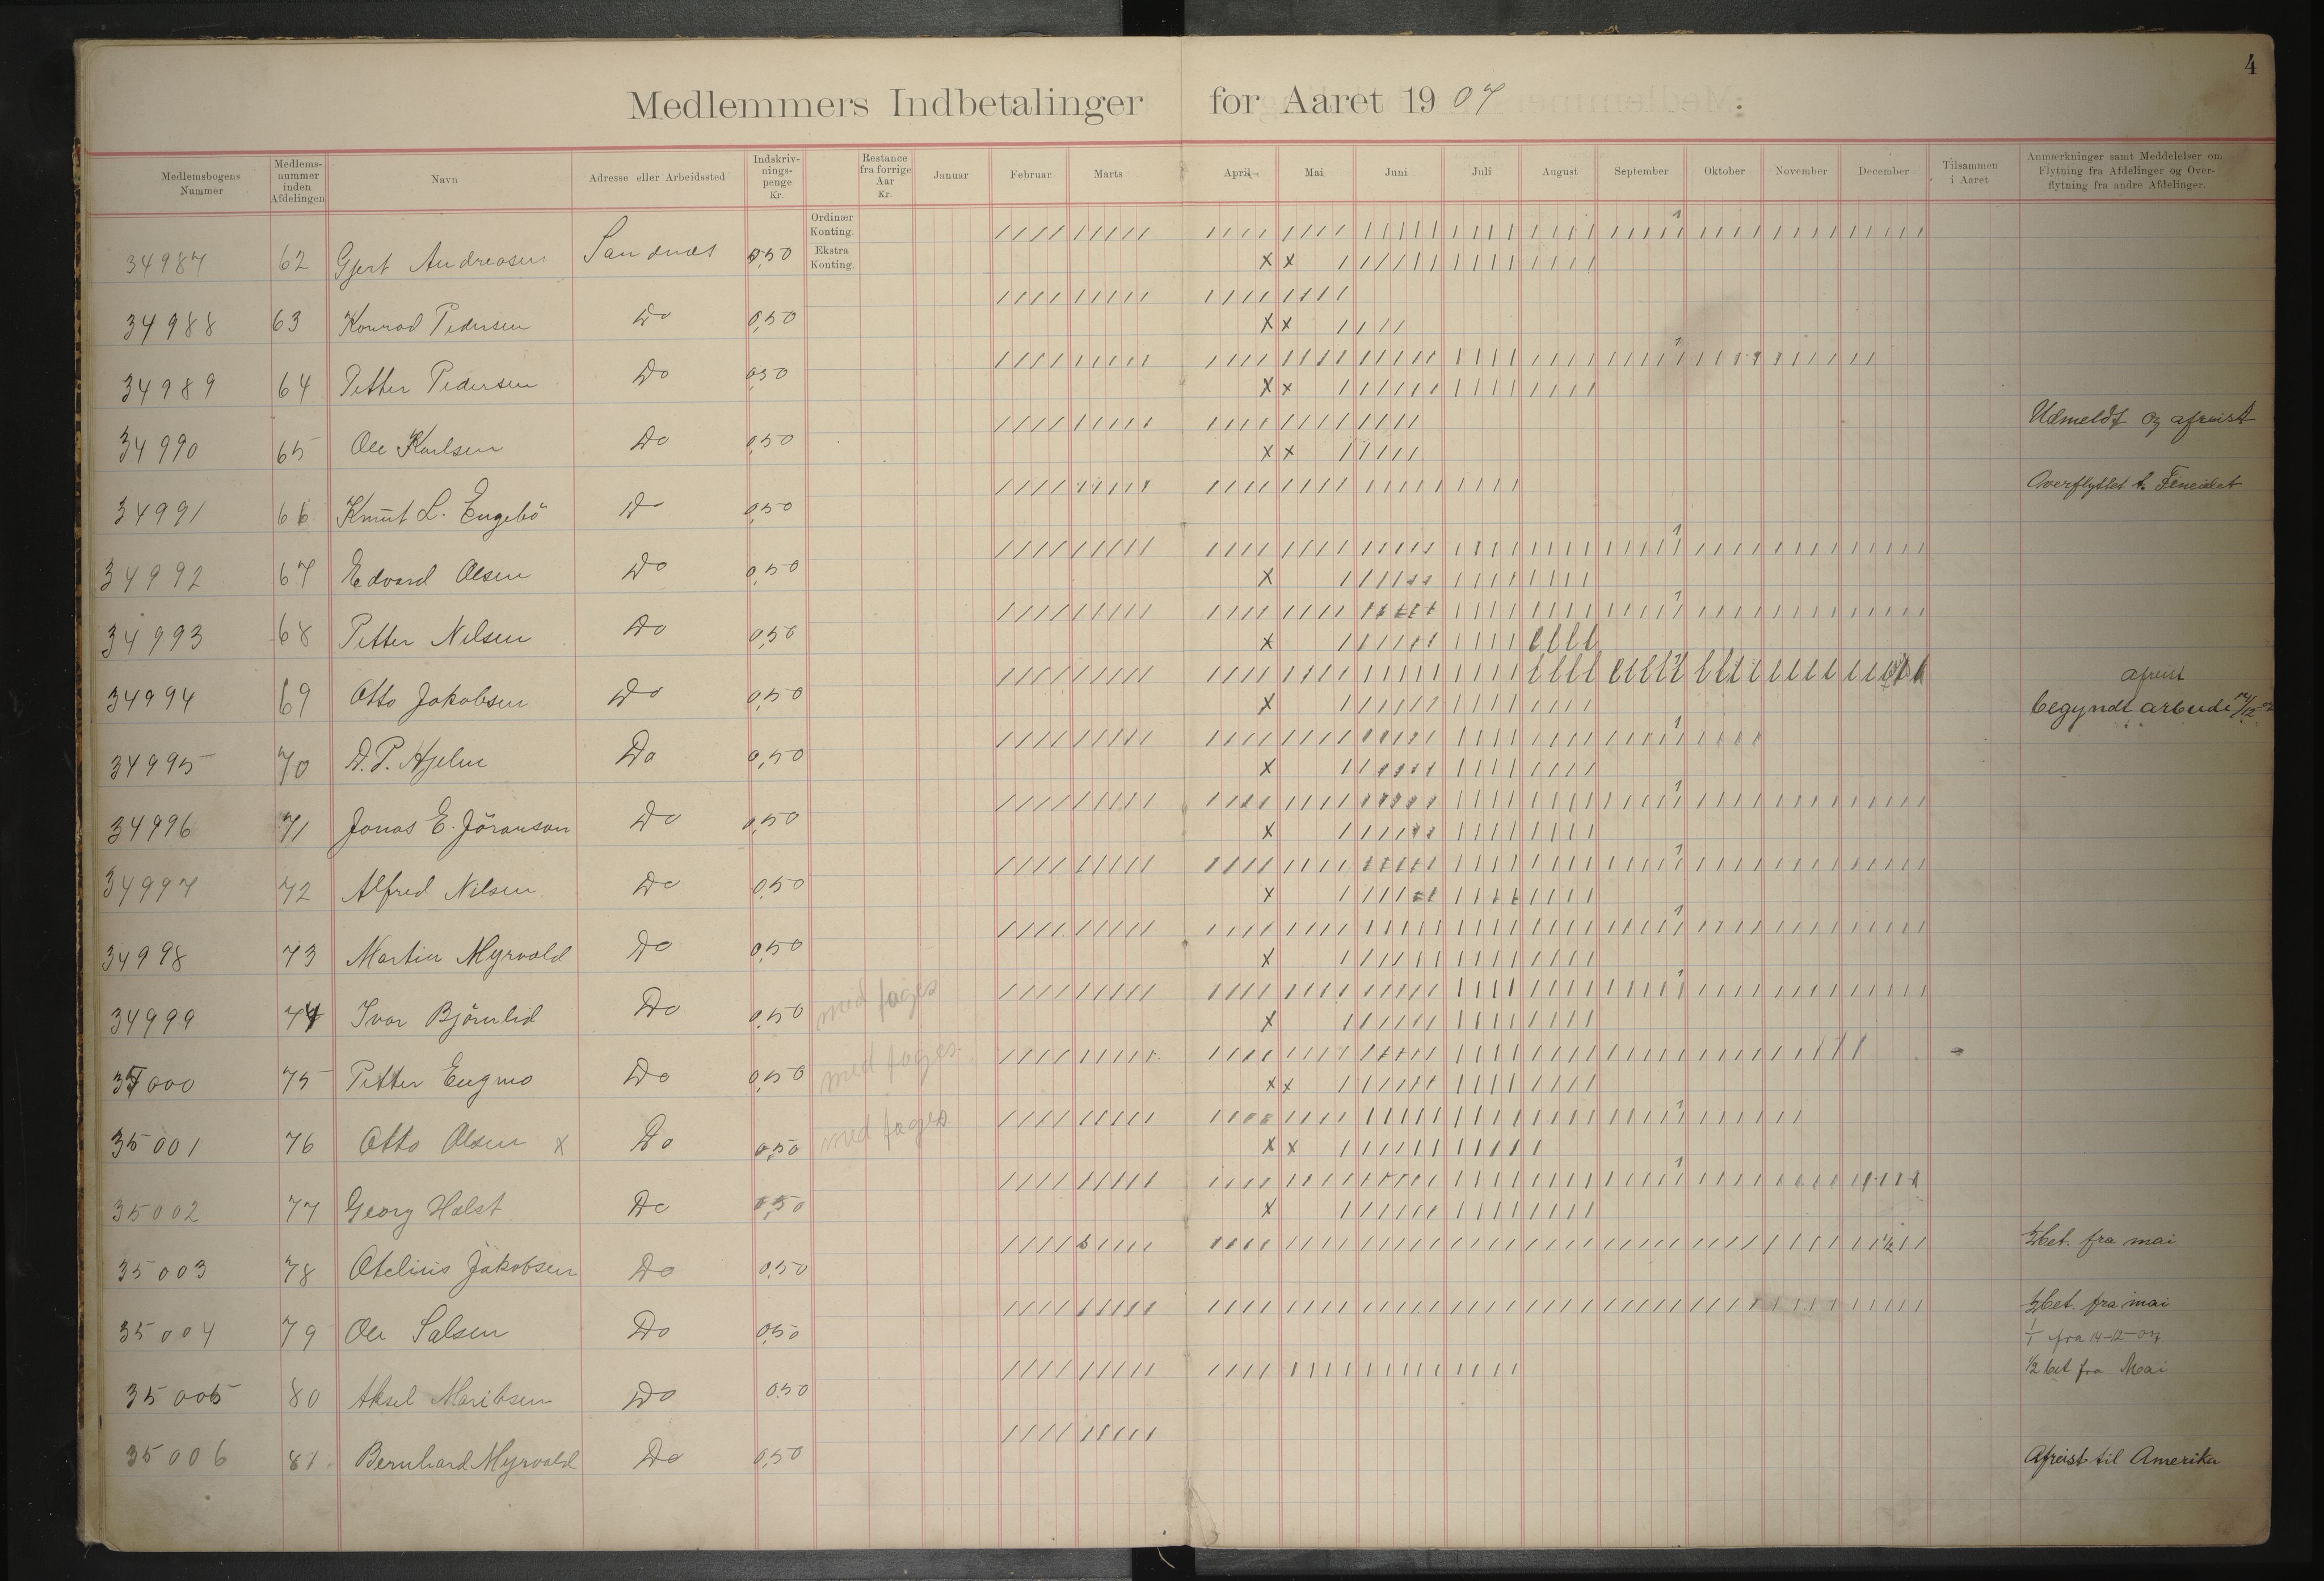 4
Medlemmers Indbetalinger for Aaret 1907
Medlemsbogens Nummer
Medlems-nummer inden Afdelingen
Navn
Adresse eller Arbeidssted
Indskriv-nings-penge Kr.
Restance fra forrige Aar Kr.
Januar
Februar
Marts
April
Mai
Juni
Juli
August
September
Oktober
November
December
Tilsammen i Aaret
Anmærkninger samt Meddelelser om Flytning fra Afdelinger og Over-flytning fra andre Afdelinger.
Ordinær Konting.
Ekstra Konting.
34987 62 Gjert Andreasen Sandnes 0,50
34988 63 Konrad Pedersen Do 0,50
34989 64 Petter Pedersen Do 0,50
34990 65 Ole Karlsen Do 0,50 Udmeldt og afreist
34991 66 Knut L. Engebö Do 0,50 Overflyttet t. Fineidet
34992 67 Edvard Olsen Do 0,50
34993 68 Petter Nilsen Do 0,50
34994 69 Otto Jakobsen Do 0,50 afreist
begyndt arbeide
34995 70 D.P. Hjelm Do 0,50
34996 71 Jonas E. Jöranson Do 0,50
34997 72 Alfred Nilsen Do 0,50
34998 73 Martin Myrvold Do 0,50
34999 74 Ivar Björnlid Do 0,50 med tages
35000 75 Petter Engmo Do 0,50 med tages
35001 76 Otto Olsen x Do 0,50 med tages
35002 77 Georg Holst Do 0,50
35003 78 Otelius Jakobsen Do 0,50 ½ bet. fra mai
35004 79 Ole Salsen Do 0,50 ½ bet. fra mai
1/1 fra 14-12-07
35005 80 Aksel Maribsen Do 0,50 ½ bet fra Mai
35006 81. Bernhard Myrvold Do 0,50 Afreist til Amerika